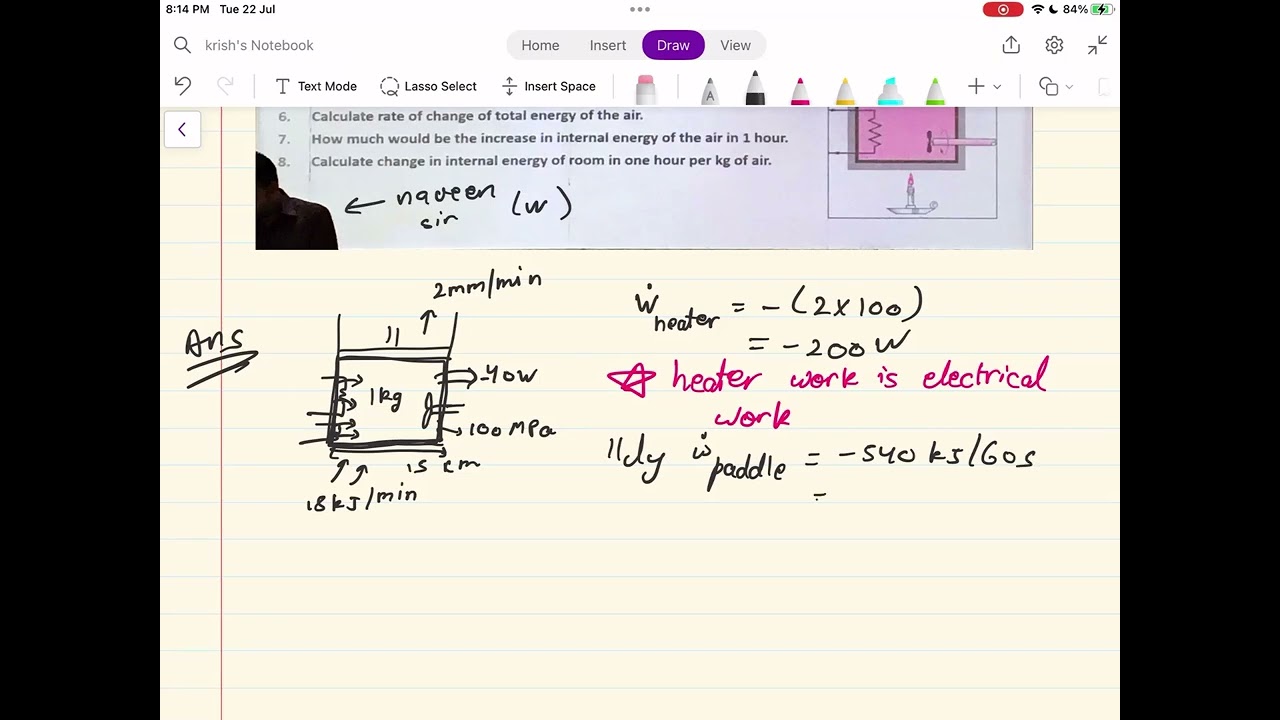 8:14 PM Tue 22 Jul
84%
krish's Notebook
Home Insert Draw View
Text Mode
Lasso Select
Insert Space
A
6. Calculate rate of change of total energy of the air.
7. How much would be the increase in internal energy of the air in 1 hour.
8. Calculate change in internal energy of room in one hour per kg of air.
← naveen sir (W)
Ans
2mm/min
1kg
-40W
100 MPa
15 cm
18kJ/min
Ẇheater = -(2x100)
= -200W
☆ heater work is electrical
work
llly ẇpaddle = -540 kJ/60s
=